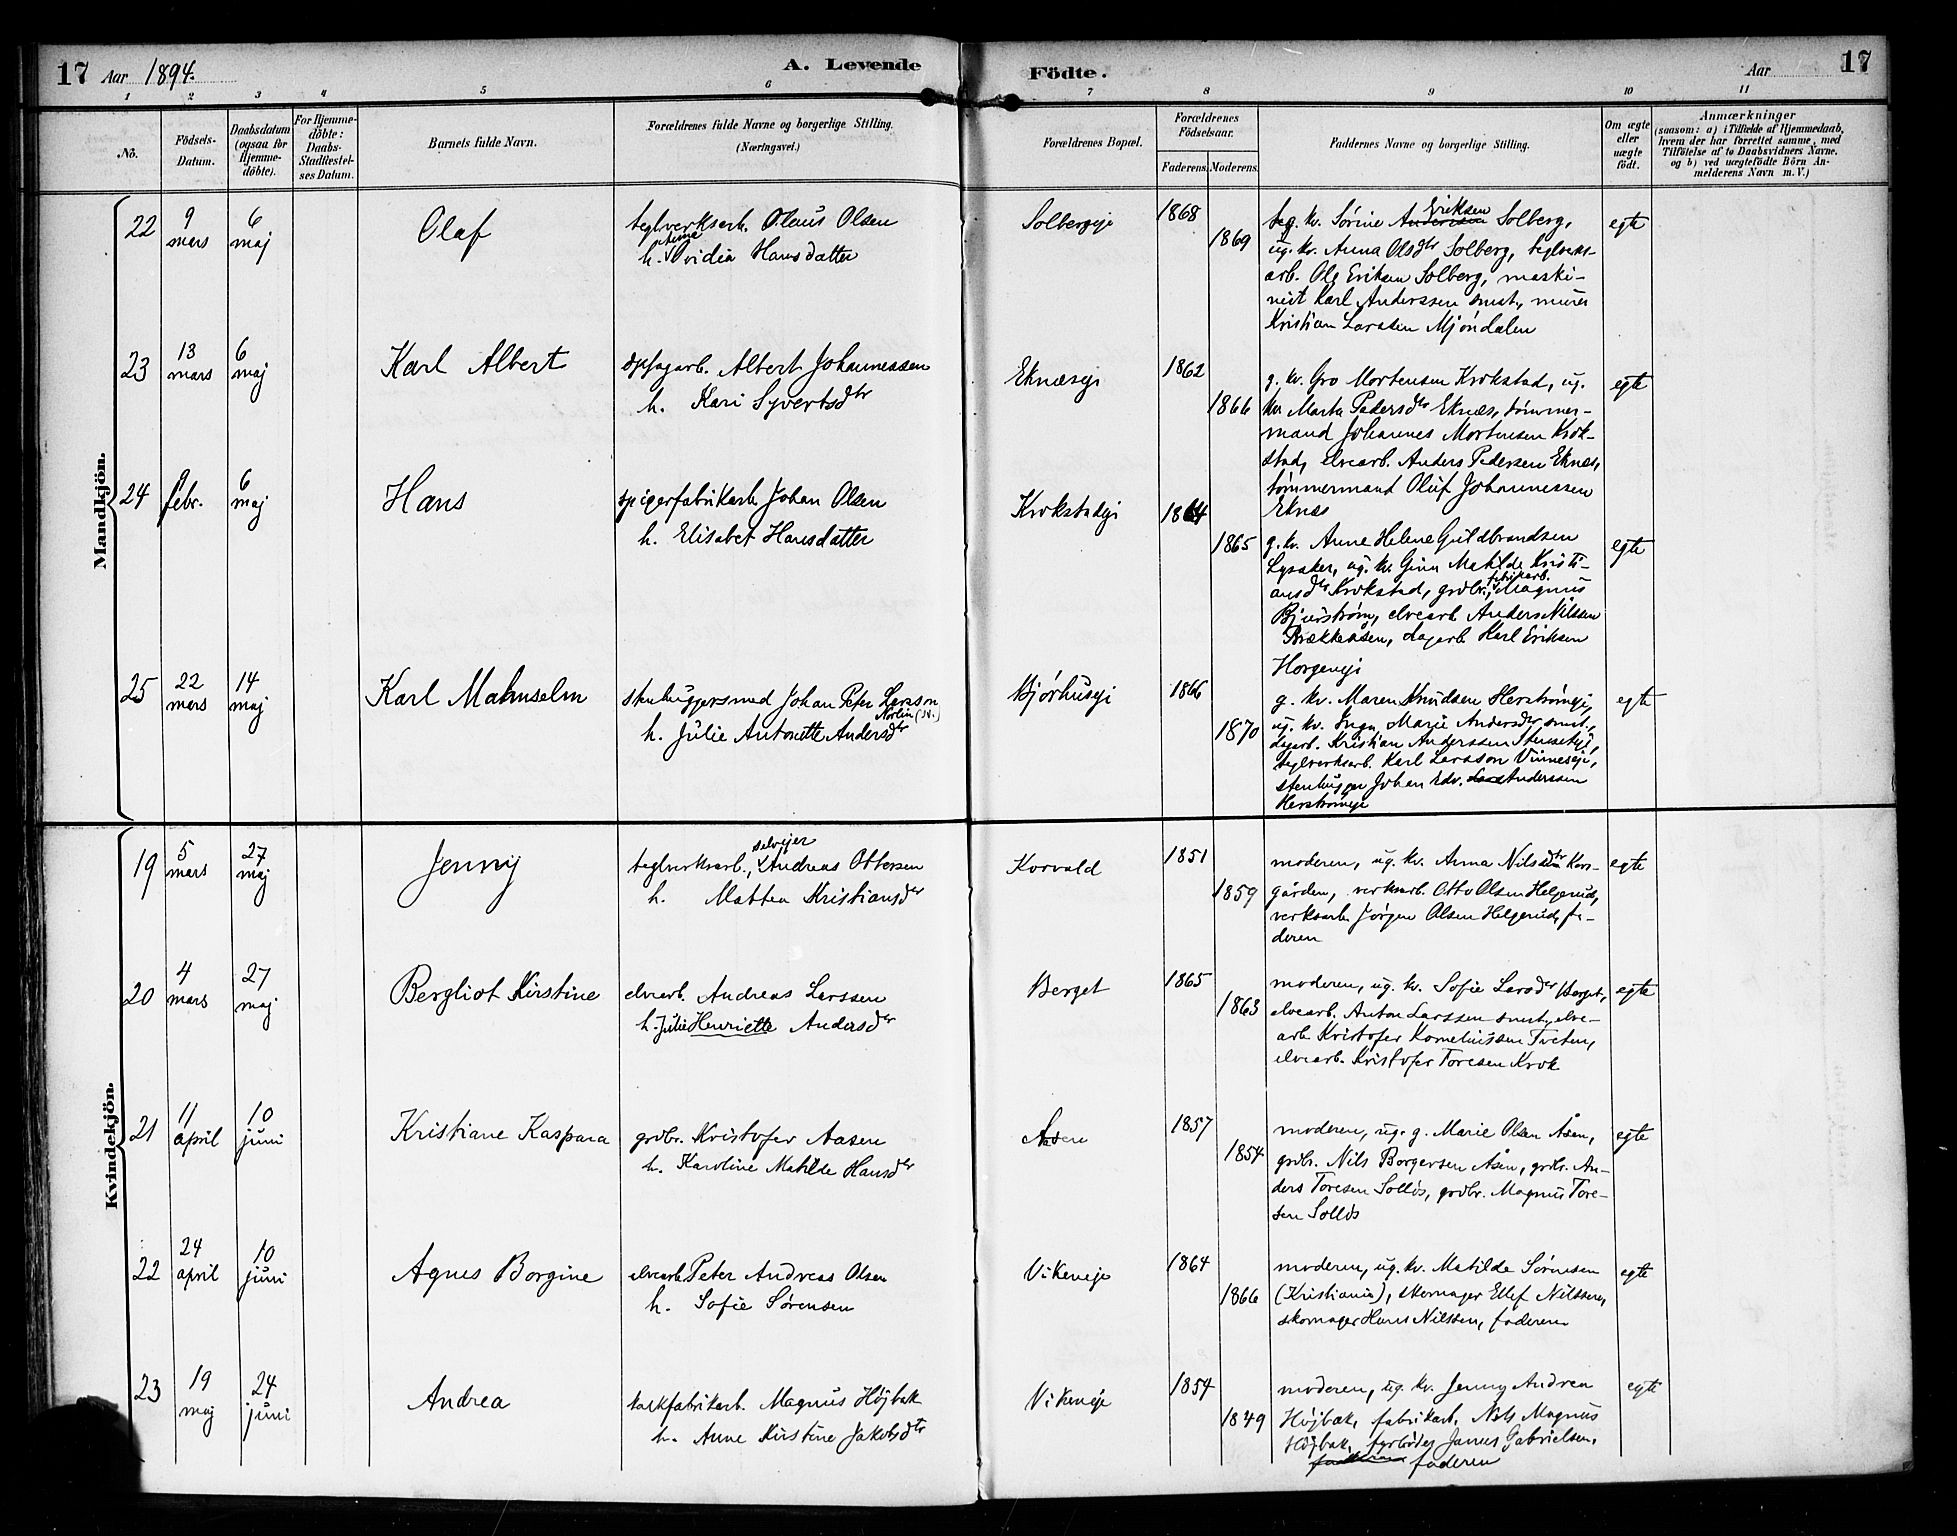 17 Aar 1894.
A. Levende
Födte.
Aar 17
1 2 3 4 5 6 7 8 9 10 11
No.
Födsels-
Datum.
Daabsdatum
(ogsaa for
Hjemme-
döbte).
For Hjemme-
döbte:
Daabs-
Stadfæstel-
ses Datum.
Barnets fulde Navn.
Forældrenes fulde Navne og borgerlige Stilling.
(Næringsvei.)
Forældrenes Bopæl.
Forældrenes
Födselsaar.
Faderens. Moderens.
Faddernes Navne og borgerlige Stilling.
Om ægte
eller
uægte
födt.
Anmærkninger
(saasom: a) i Tilfælde af Hjemmedaab,
hvem der har forrettet samme, med
Tilföielse af to Daabsvidners Navne.
og b) ved uægtefödte Börn An-
melderens Navn m. V.)
Mandkjön.
22
9
mars
6
maj
Olaf
teglverksarb. Olaus Olsen
h. Ovidia Hansdatter
Solbergeje
1868
1869
Eriksen
g. kv. Sørine Solberg,
ug. kv. Anna Olsdtr Solberg, teglverks-
arb. Ole Eriksen Solberg, maski-
nist Karl Anderssen smst., murer
Kristian Larssen Mjöndalen
egte
23
13
mars
6
maj
Karl Albert
opsagarb. Albert Johannessen
h. Kari Syvertsdtr
Eknæseje
1862
1866
g. kv. Gro Mortensen Krokstad, ug.
kv. Marta Pedersdtr Eknæs, tømmer-
mand Johannes Mortensen Krok-
stad, elvearb. Anders Pedersen Eknæs,
tømmermand Oluf Johannessen
Eknæs
egte
24
9
febr.
6
maj
Hans
spigerfabrikarb. Johan Olsen
h. Elisabet Hansdatter
Krokstadeje
1864
1865
g. kv. Anne Helene Guldbrandsen
Lysaker, ug. kv. Gina Matilde Kristi-
fabrikarb.
ansdtr Krokstad, grdbr., Magnus
Bjurstrøm, elvearb. Anders Nilssen
Brækkeåsen, dagarb. Karl Eriksen
Horgeneje
egte
25
22
mars
14
maj
Karl
stenhuggersmed Johan Peter Larsson
Norlin (N.)
h. Julie Antonette Andersdtr
Bjørhuseje
1866
1870
g. kv. Maren Knudsen Herstrømeje,
ug. kv. Inga Marie Andersdtr smst.,
dagarb. Kristian Anderssen
teglverksarb. Karl Larsson Vinneseje,
stenhugger Johan Edv. Anderssen
Herstrømeje
egte
Kvindekjön.
19
5
mars
27
maj
Jenny
selvejer
teglverksarb., Andreas Ottersen
h. Mattea Kristiansdtr
Korvald
1851
1859
moderen, ug. kv. Anna Nilsdtr Kors-
gården, verksarb. Otto Olsen Helgerud,
verksarb. Jørgen Olsen Helgerud, fa-
deren
egte
20
4
mars
27
maj
Bergliot Kirstine
elvearb. Andreas Larssen
h. Julie Henriette Andersdtr
Berget
1865
1863
moderen, ug. kv. Sofie Larsdtr Berget,
elvearb. Anton Larssen smst., elve-
arb. Kristofer Korneliussen Tveten,
elvearb. Kristofer Toresen Krok
egte
21
11
april
10
juni
Kristiane Kaspara
grdbr. Kristofer Aasen
h. Karoline Matilde Hansdtr
Aasen
1857
1854
moderen, ug. g. Marie Olsen Åsen,
grdbr. Nils Borgersen Åsen, grdbr. An-
ders Toresen Solløs, grdbr. Magnus Tore-
sen Solløs
egte
22
24
april
10
juni
Agnes Borgine
elvearb. Peter Andreas Olsen
h. Sofie Sørensen
Vikeneje
1864
1866
moderen, ug. kv. Matilde Sørensen
(Kristiania), skomager Ellef Nilssen,
skomager Hans Nilssen, faderen
egte
23
19
maj
24
juni
Andrea
kalkfabrikarb. Magnus Højbak
h. Anne Kirstine Jakobsdtr
Vikeneje
1854
1849
moderen, ug. kv. Jenny Andrea
Højbak, fabrikarb. Nils Magnus
Højbak, fyrbøder Janus Gabrielsen,
faderen
egte